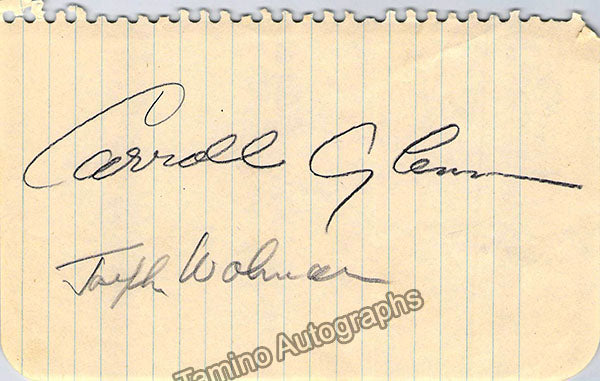 Carroll Glenn
Joseph Wolman
Tamino Autographs